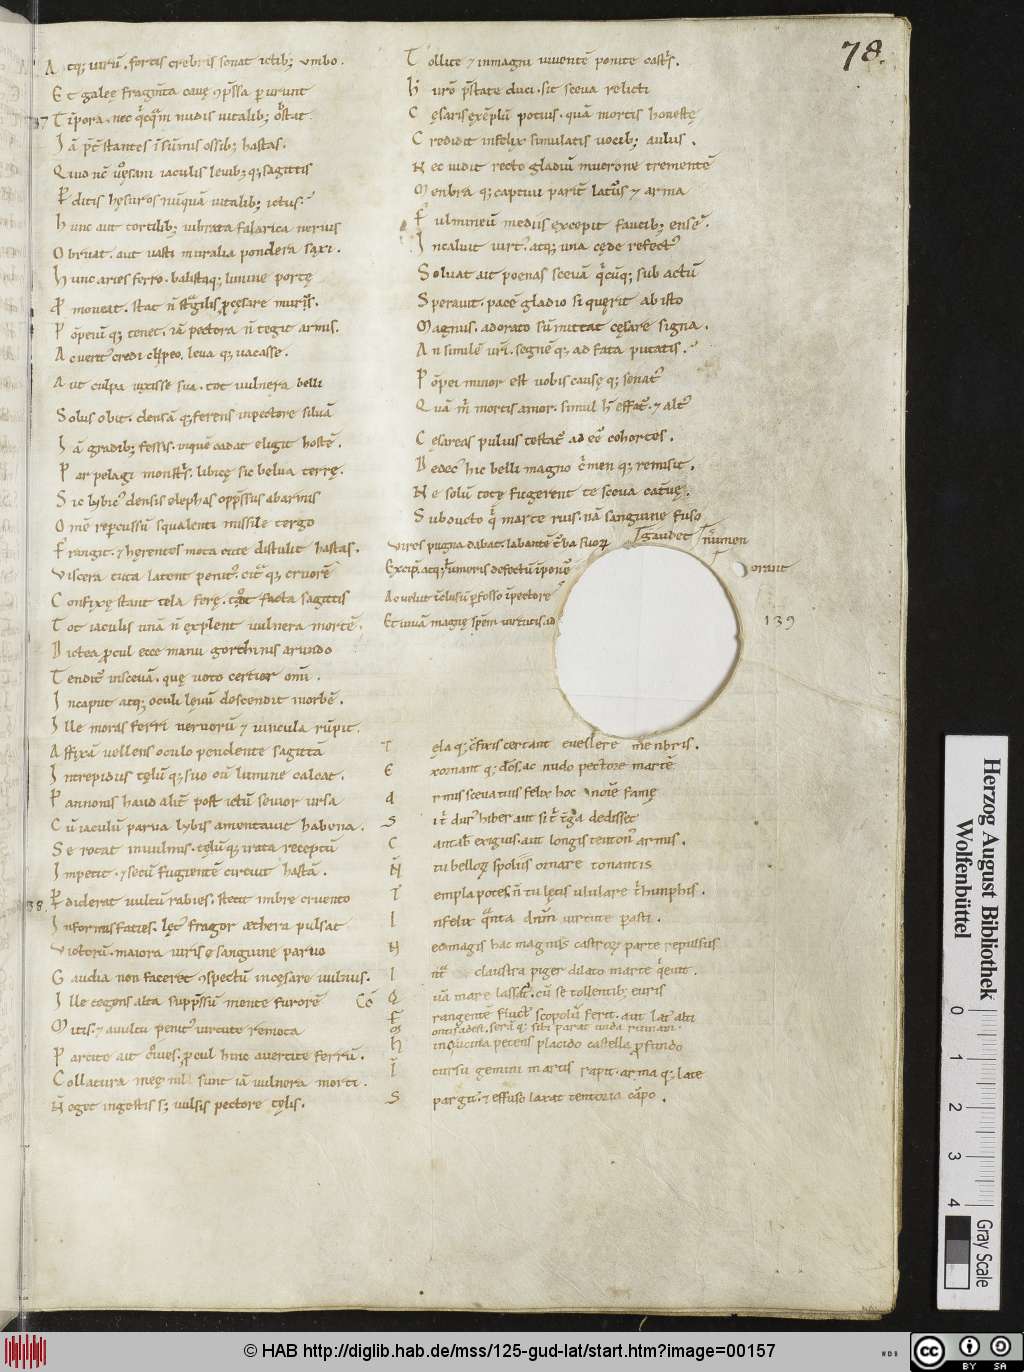 78.
Atq; uirũ. fortis crebris sonat ictib; umbo.
Et galeę fragm̃ta cauę cp̃ssa ꝑurunt
37 Tẽpora. nec q̃cq̃m nudis uitalib; obstat
Iã p̃t̃ stantes ĩ sũmis ossib; hastas.
Quid nc̃ uęsani iaculis leuib; q; sagittis
Pditis hęsuros nũquã uitalib; ictus.
Hunc aut tortilib; uibrata falarica neruis
Obruat. aut uasti muralia pondera saxi.
Hunc aries ferro. balistaq; limine portę
Pmoueat. stat ñ fragilis ꝓ cęsare murus.
Põpeiũ q; tenet. iã pectora ñ tegit armis.
Ac ueritus credi clypeo, leua q; uacasse.
Aut culpa uixisse sua. tot uulnera belli
Solus obit. densã q; ferens inpectore siluã
Iã gradib; fessis. inquẽ cadat eligit hostẽ.
Par pelagi monstris. libicę sic belua terrę.
Sic lybicus densis elephas opp̃ssus abarmis
Omẽ reꝑcussũ squalenti missile tergo
Frangit. & hęrentes mota cute distulit hastas.
Viscera tuta latent penitus. citra q; cruorẽ
Confixę stant tela ferę. tot facta sagittis
Tot iaculis unã ñ explent uulnera mortẽ.
Dictea ꝓcul ecce manu gorthinis arundo
Tendit insceuã. quę uoto certior omi.
Incaput atq; oculi lęuũ descendit inorbẽ.
Ille moras ferri neruorũ & uincula rũpit.
Affixã uellens oculo pendente sagittã
Intrepidus tęlũ q; suo cũ lumine calcat.
Pannonis haud aliter post ictũ seuior ursa
Cũ iaculũ parua lybis amentauit habena.
Se rotat inuulnus. tęlũ q; irata receptũ
Impetit. & secũ fugientẽ circuit hastã.
38. Pdiderat uultũ rabies. stetit imbre cruento
Informis facies. lętus fragor æthera pulsat
Victorũ. maiora uiris e sanguine paruo
Gaudia non faceret cspectũ incęsare uulnus.
Ille tegens alta supp̃ssũ mente furorẽ
Mitis. & auultu penitus uirtute remota
Parcite ait ciues. ꝓcul hinc auertite ferrũ.
Collatura meę nil sunt iã uulnera morti.
Ñ eget ingestis s; uulsis pectore tęlis.
Tollite & inmagni uiuentẽ ponite castris.
H urõ p̃state duci. sit sceua relicti
Cęsaris exẽplũ potius. quã mortis honestę
Credidit infelix simulatis uocib; aulus.
Nec uidit recto gladiũ mucrone trementẽ
Menbra q; captiui pariter laturus & arma
Fulmineũ mediis excepit faucib; ensẽ.
Incaluit uirtus. atq; una cęde refectus
Soluat ait poenas sceuã q̃cũq; subactũ
Sperauit. pacẽ gladio si quęrit ab isto
Magnus. adorato sũmittat cęsare signa.
An similẽ uri. segnẽ q; ad fata putatis.
Põpei minor est uobis causę q; senatus
Quã m̃ mortis amor. simul h̃ effatur. & altus
Cęsareas puluis testatur ad eẽ cohortes.
Dedecus hic belli magno crimen q; remisit.
Ne solũ totę fugerent te sceua cateruę.
Subducto q̃ marte ruis. nã sanguine fuso
Vires pugna dabat. labantẽ turba suorum
gaudet numen
Excip. atq; humeris defectũ ĩponere
orant
Ac uelut ĩclusũ ꝑfosso ĩpectore
Et uiuã magnę spẽm uirtutis. ad
139
Tęla q; cfixis certant euellere menbris.
Exornant q; deos. ac nudo pectore martẽ
Armis sceua tuis felix hoc noĩe famę
Sit durus hiber aut si tibi terga dedisset
Cantaber exiguis. aut longis teutonus armis.
Ñ tu bellorum spoliis ornare tonantis
Templa potes. ñ tu lętis ululare triumphis.
Infelix quanta dnm̃ uirtute parasti.
N eomagis hac magnus castrorum parte repulsus
Intra claustra piger dilato marte quieuit.
Quã mare lassatur. cũ se tollentib; euris
Frangentẽ fluctus scopulũ ferit. aut latus alti
Montis adest. serã q; sibi parat unda ruinam.
Hinc uicina petens placido castella ꝓfundo
Incursu gemini martis rapit. arma q; late
Spargit. & effuso laxat tentoria cãpo.
Herzog August Bibliothek
Wolfenbüttel
0 1 2 3 4
Gray Scale
© HAB http://diglib.hab.de/mss/125-gud-lat/start.htm?image=00157
WDB
cc BY SA